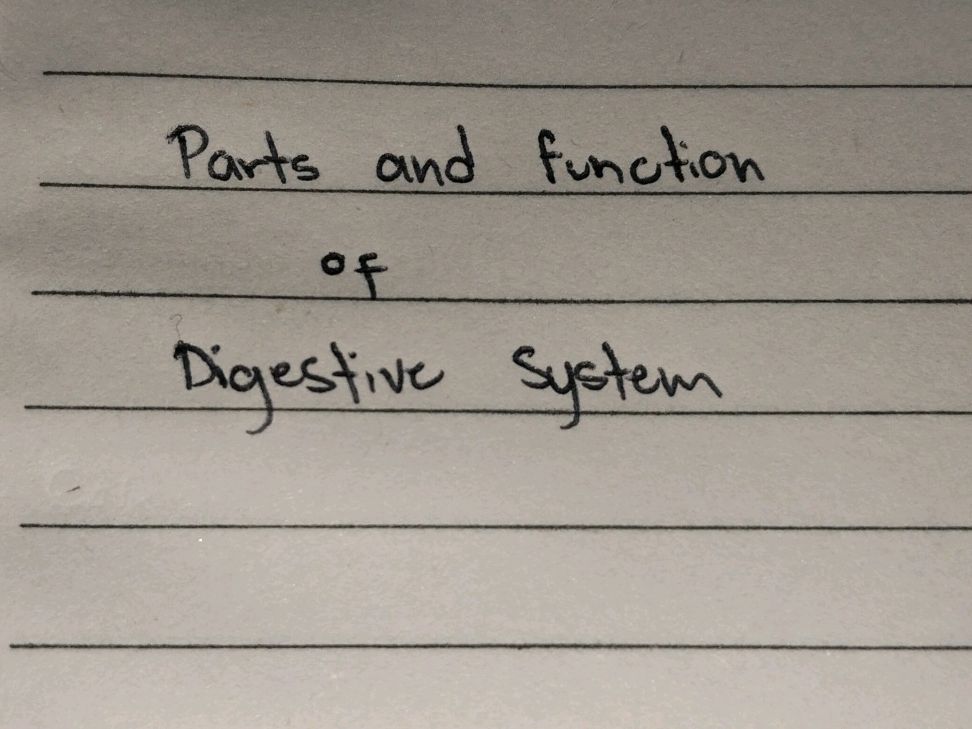 Parts and function
of
Digestive System